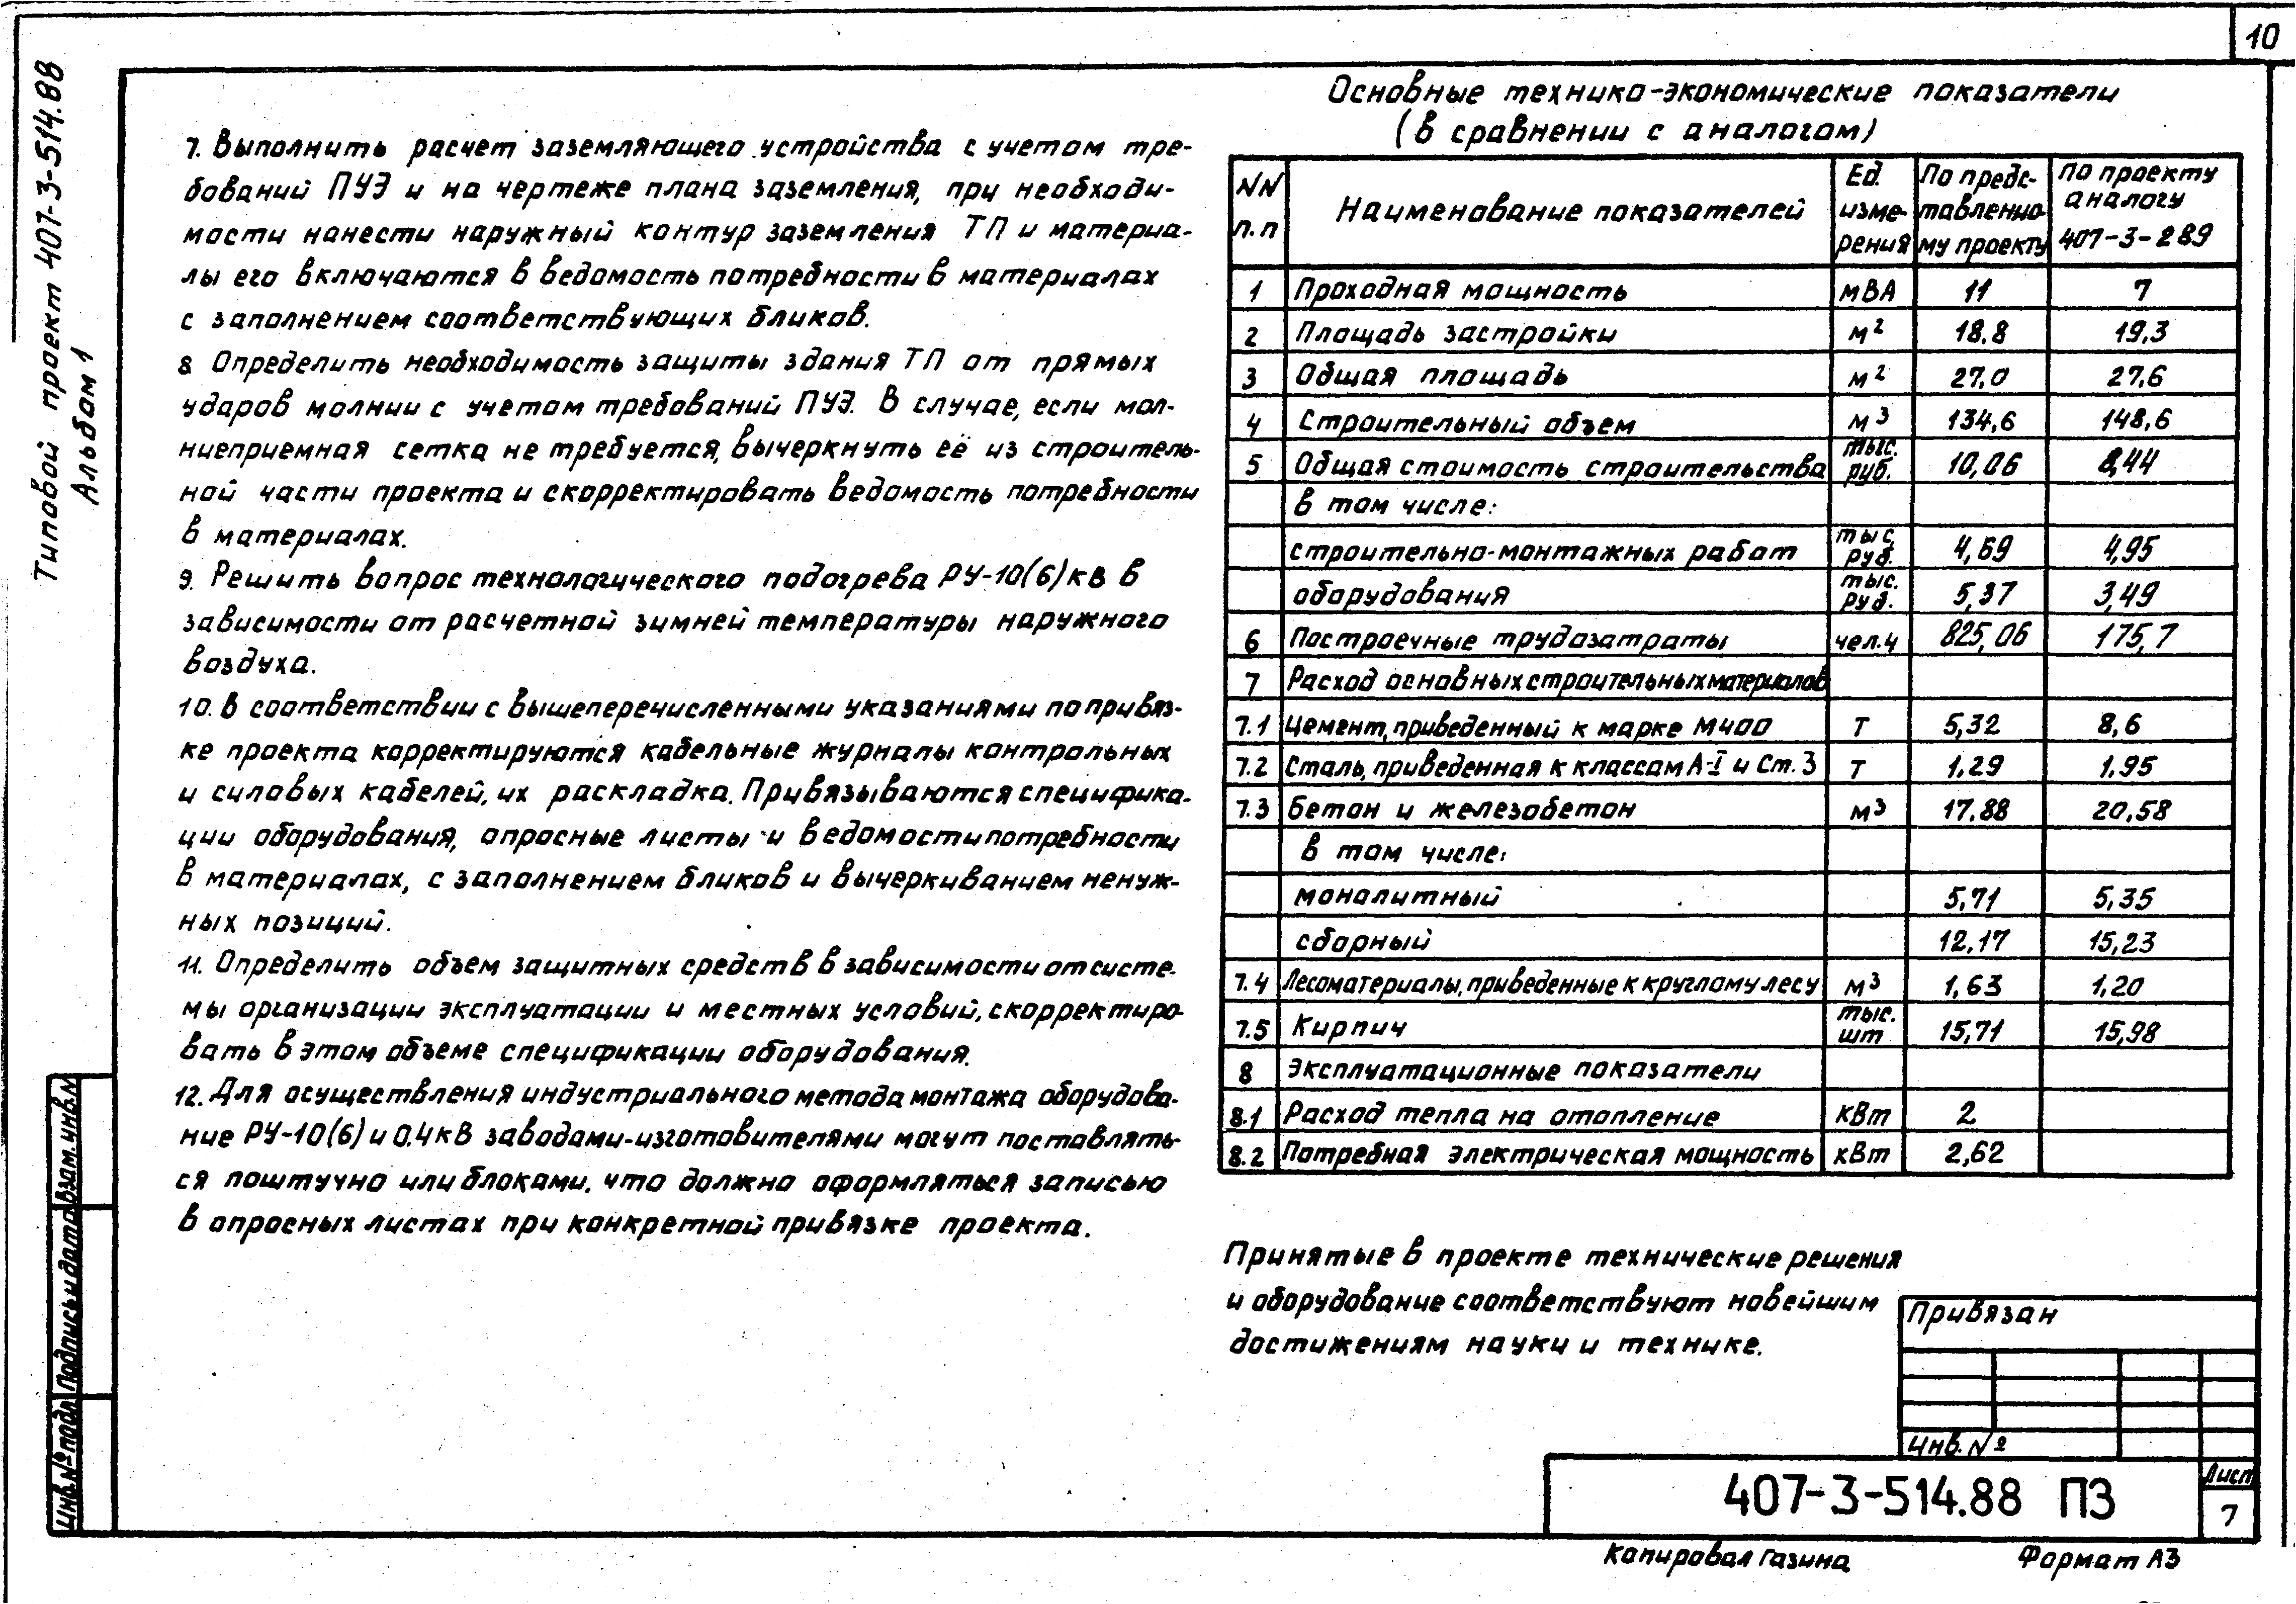 10
Типовой проект 407-3-514.88
Альбам 1
7. Выполнить расчет заземляющего устройства с учетом тре-
бований ПУЭ и на чертеже плана заземления, при необходи-
мости нанести наружный контур заземления ТП и материа-
лы его включаются в ведомость потребности в материалах
с заполнением соответствующих бликов.
8. Определить необходимость защиты здания ТП от прямых
ударов молнии с учетом требований ПУЭ. В случае, если мол-
ниеприемная сетка не требуется, вычеркнуть её из строитель-
ной части проекта и скорректировать ведомость потребности
в материалах.
9. Решить вопрос технологического подогрева РУ-10(6)кВ в
зависимости от расчетной зимней температуры наружного
воздуха.
10. В соответствии с вышеперечисленными указаниями по привяз-
ке проекта корректируются кабельные журналы контрольных
и силовых кабелей, их раскладка. Привязываются специфика-
ции оборудования, опросные листы и ведомости потребности
в материалах, с заполнением бликов и вычеркиванием ненуж-
ных позиций.
11. Определить объем защитных средств в зависимости от систе-
мы организации эксплуатации и местных условий, скорректиро-
вать в этом объеме спецификации оборудования.
12. Для осуществления индустриального метода монтажа оборудова-
ние РУ-10(6) и 0.4кВ заводами-изготовителями могут поставлять-
ся поштучно или блоками, что должно оформляться записью
в опросных листах при конкретной привязке проекта.
Основные технико-экономические показатели
(в сравнении с аналогом)
NN п.п Наименование показателей Ед. изме-рения По предс-тавленно-му проекту По проекту аналогу 407-3-289
1 Проходная мощность мВА 11 7
2 Площадь застройки м2 18.8 19,3
3 Общая площадь м2 27,0 27,6
4 Строительный объем м3 134,6 148,6
5 Общая стоимость строительства тыс. руб. 10,06 8,44
в том числе:
строительно-монтажных работ тыс. руб. 4,69 4,95
оборудования тыс. руб. 5,37 3,49
6 Построечные трудозатраты чел.ч 825,06 175,7
7 Расход основных строительных материалов
7.1 Цемент, приведенный к марке М400 Т 5,32 8,6
7.2 Сталь, приведенная к классам А-I и Ст. 3 Т 1,29 1,95
7.3 Бетон и железобетон м3 17.88 20,58
в том числе:
монолитный 5,71 5,35
сборный 12,17 15,23
7.4 Лесоматериалы, приведенные к круглому лесу м3 1,63 1,20
7.5 Кирпич тыс. шт 15,71 15,98
8 Эксплуатационные показатели
8.1 Расход тепла на отопление кВт 2
8.2 Потребная электрическая мощность кВт 2,62
Принятые в проекте технические решения
и оборудование соответствуют новейшим
достижениям науки и технике.
Привязан
Инв. №
407-3-514.88 ПЗ
Лист
7
Инв.№ подл. Подпись и дата Взам. инв.N
Копировал Газина Формат А3